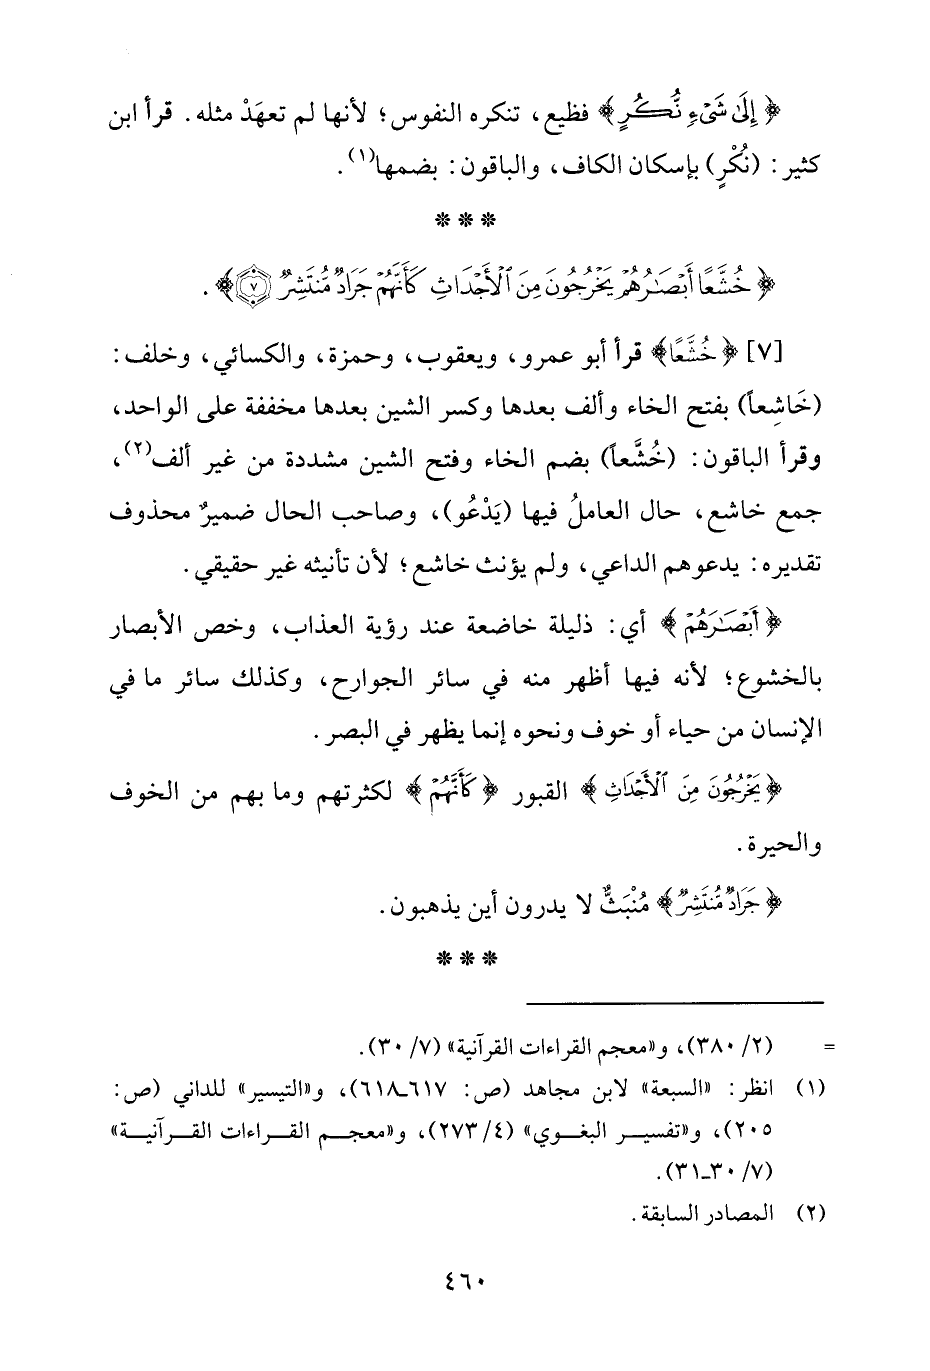 ﴿إِلَىٰ شَيْءٍ نُّكُرٍ﴾ فظيع، تنكره النفوس؛ لأنها لم تعهَدْ مثله. قرأ ابن
كثير: (نُكْرٍ) بإسكان الكاف، والباقون: بضمها(١).
* * *
﴿خُشَّعًا أَبْصَٰرُهُمْ يَخْرُجُونَ مِنَ ٱلْأَجْدَاثِ كَأَنَّهُمْ جَرَادٌ مُّنتَشِرٌ ٧﴾.
[٧] ﴿خُشَّعًا﴾ قرأ أبو عمرو، ويعقوب، وحمزة، والكسائي، وخلف:
(خَاشِعاً) بفتح الخاء وألف بعدها وكسر الشين بعدها مخففة على الواحد،
وقرأ الباقون: (خُشَّعاً) بضم الخاء وفتح الشين مشددة من غير ألف(٢)،
جمع خاشع، حال العاملُ فيها (يَدْعُو)، وصاحب الحال ضميرٌ محذوف
تقديره: يدعوهم الداعي، ولم يؤنث خاشع؛ لأن تأنيثه غير حقيقي.
﴿أَبْصَٰرُهُمْ﴾ أي: ذليلة خاضعة عند رؤية العذاب، وخص الأبصار
بالخشوع؛ لأنه فيها أظهر منه في سائر الجوارح، وكذلك سائر ما في
الإنسان من حياء أو خوف ونحوه إنما يظهر في البصر.
﴿يَخْرُجُونَ مِنَ ٱلْأَجْدَاثِ﴾ القبور ﴿كَأَنَّهُمْ﴾ لكثرتهم وما بهم من الخوف
والحيرة.
﴿جَرَادٌ مُّنتَشِرٌ﴾ مُنْبَثٌّ لا يدرون أين يذهبون.
* * *
= (٢/ ٣٨٠)، و«معجم القراءات القرآنية» (٧/ ٣٠).
(١) انظر: «السبعة» لابن مجاهد (ص: ٦١٧ـ٦١٨)، و«التيسير» للداني (ص:
٢٠٥)، و«تفسير البغوي» (٤/ ٢٧٣)، و«معجم القراءات القرآنية»
(٧/ ٣٠ـ٣١).
(٢) المصادر السابقة.
٤٦٠